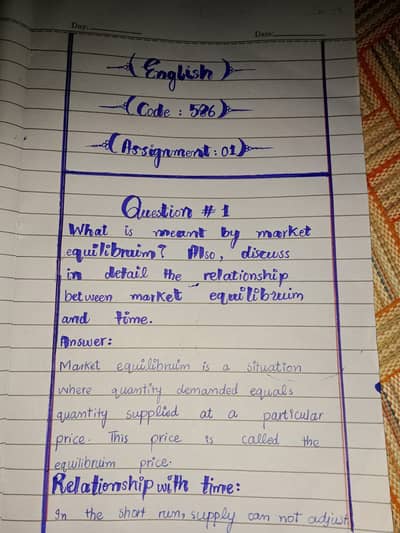 Day: Date:
English
Code : 586
Assignment : 01
Question # 1
What is meant by market
equilibruim? Also, discuss
in detail the relationship
between market equilibruim
and time.
Answer:
Market equilibruim is a situation
where quantity demanded equals
quantity supplied at a particular
price. This price is called the
equilibruim price.
Relationship with time:
In the short run, supply can not adjust